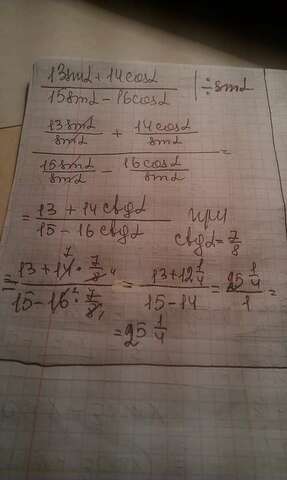 13sinα + 14cosα / 15sinα - 16cosα | ÷ sinα
(13sinα / sinα + 14cosα / sinα) / (15sinα / sinα - 16cosα / sinα) =
= 13 + 14ctgα / 15 - 16ctgα при ctgα = 7/8
= (13 + 14 · 7/8) / (15 - 16 · 7/8) = (13 + 12 1/4) / (15 - 14) = (25 1/4) / 1 =
= 25 1/4